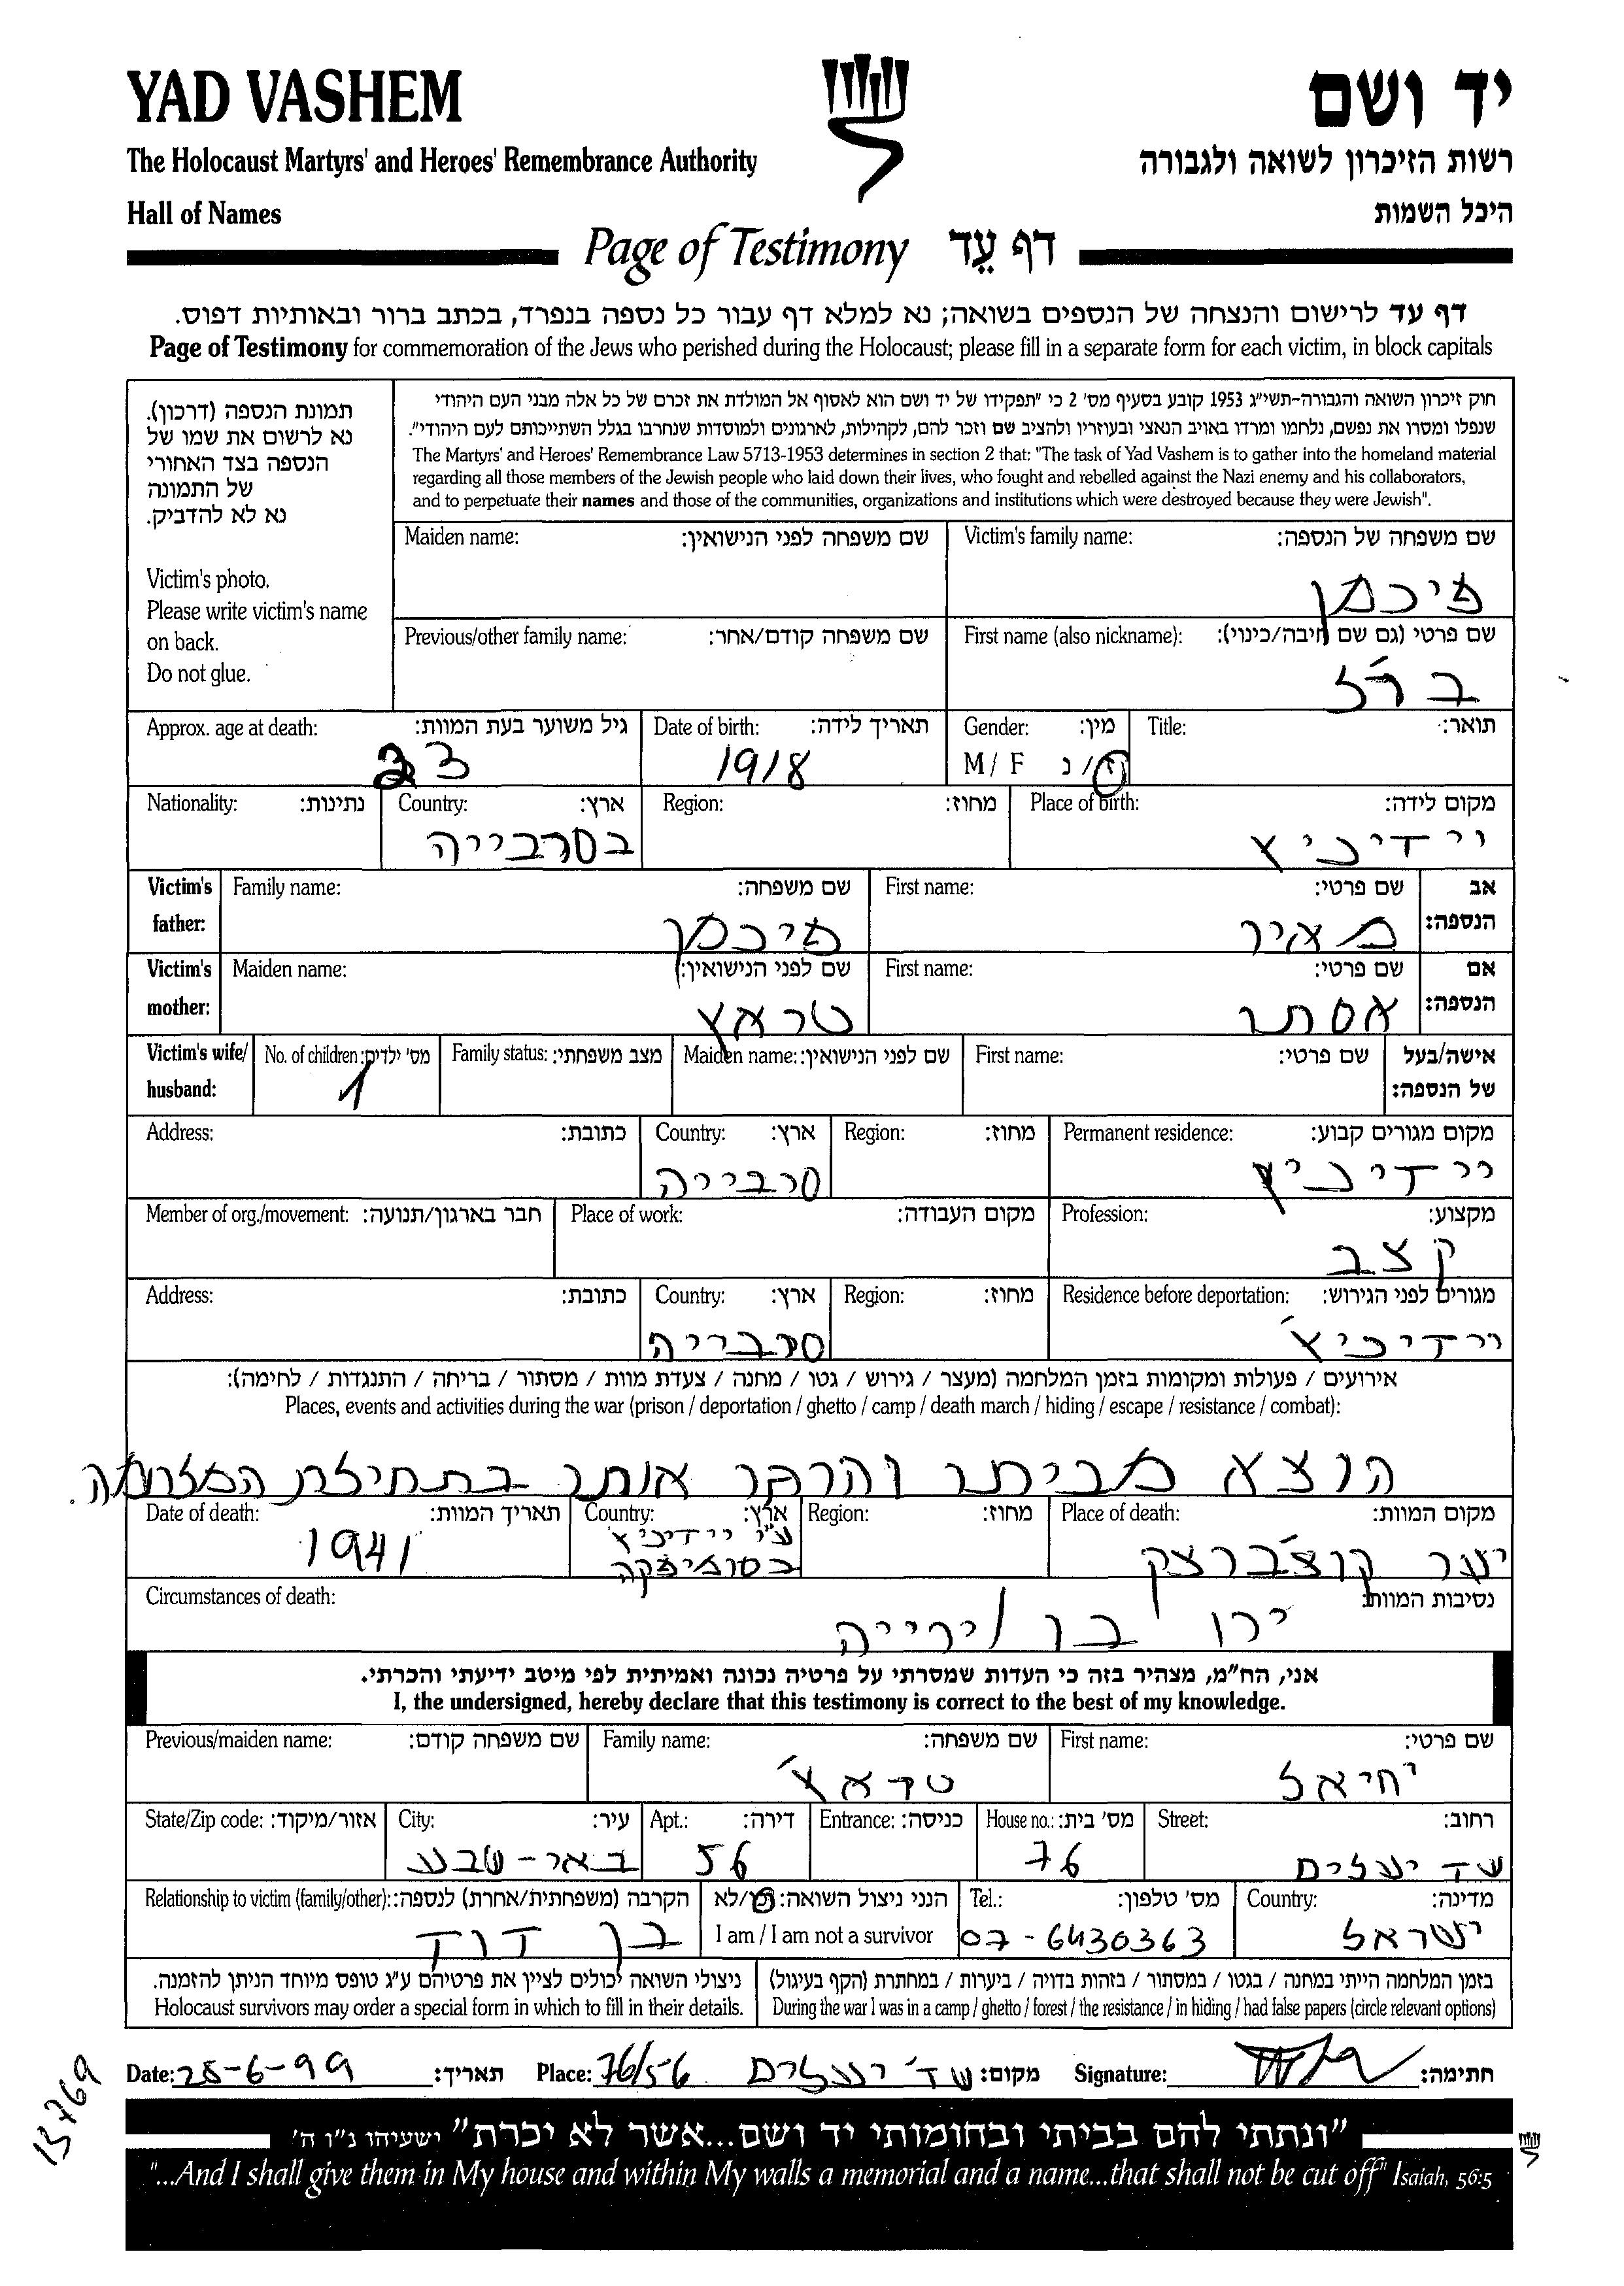 YAD VASHEM
יד ושם
The Holocaust Martyrs' and Heroes' Remembrance Authority
רשות הזיכרון לשואה ולגבורה
Hall of Names
היכל השמות
Page of Testimony דף עֵד
דף עד לרישום והנצחה של הנספים בשואה; נא למלא דף עבור כל נספה בנפרד, בכתב ברור ובאותיות דפוס.
Page of Testimony for commemoration of the Jews who perished during the Holocaust; please fill in a separate form for each victim, in block capitals
תמונת הנספה (דרכון).
נא לרשום את שמו של
הנספה בצד האחורי
של התמונה
נא לא להדביק.
Victim's photo.
Please write victim's name
on back.
Do not glue.
חוק זיכרון השואה והגבורה-תשי"ג 1953 קובע בסעיף מס' 2 כי "תפקידו של יד ושם הוא לאסוף אל המולדת את זכרם של כל אלה מבני העם היהודי
שנפלו ומסרו את נפשם, נלחמו ומרדו באויב הנאצי ובעוזריו ולהציב שם וזכר להם, לקהילות, לארגונים ולמוסדות שנחרבו בגלל השתייכותם לעם היהודי".
The Martyrs' and Heroes' Remembrance Law 5713-1953 determines in section 2 that: "The task of Yad Vashem is to gather into the homeland material
regarding all those members of the Jewish people who laid down their lives, who fought and rebelled against the Nazi enemy and his collaborators,
and to perpetuate their names and those of the communities, organizations and institutions which were destroyed because they were Jewish".
Victim's family name: שם משפחה של הנספה:
פיכמן
Maiden name: שם משפחה לפני הנישואין:
First name (also nickname): שם פרטי (גם שם חיבה/כינוי):
Previous/other family name: שם משפחה קודם/אחר:
Title: תואר:
Gender: מין:
M / F ז/נ
Date of birth: תאריך לידה:
1918
Approx. age at death: גיל משוער בעת המוות:
23
Place of birth: מקום לידה:
יידיכיץ
Region: מחוז:
Country: ארץ:
בסרבייה
Nationality: נתינות:
Victim's father: אב הנספה:
First name: שם פרטי:
מאיר
Family name: שם משפחה:
פיכמן
Victim's mother: אם הנספה:
First name: שם פרטי:
אסתר
Maiden name: שם לפני הנישואין:
טראץ
Victim's wife/ husband: אישה/בעל של הנספה:
First name: שם פרטי:
Maiden name: שם לפני הנישואין:
Family status: מצב משפחתי:
No. of children: מס' ילדים:
1
Permanent residence: מקום מגורים קבוע:
יידיכיץ
Region: מחוז:
Country: ארץ:
סרבייה
Address: כתובת:
Profession: מקצוע:
קצב
Place of work: מקום העבודה:
Member of org./movement: חבר בארגון/תנועה:
Residence before deportation: מגורים לפני הגירוש:
יידיכיץ'
Region: מחוז:
Country: ארץ:
סרבייה
Address: כתובת:
אירועים / פעולות ומקומות בזמן המלחמה (מעצר / גירוש / גטו / מחנה / צעדת מוות / מסתור / בריחה / התנגדות / לחימה):
Places, events and activities during the war (prison / deportation / ghetto / camp / death march / hiding / escape / resistance / combat):
הוצא מביתו אותו בתחילת המלחמה.
Place of death: מקום המוות:
יער
Region: מחוז:
Country: ארץ:
ע"י יידיכיץ
Date of death: תאריך המוות:
1941
Circumstances of death: נסיבות המוות:
ירו בו ירייה
אני, הח"מ, מצהיר בזה כי העדות שמסרתי על פרטיה נכונה ואמיתית לפי מיטב ידיעתי והכרתי.
I, the undersigned, hereby declare that this testimony is correct to the best of my knowledge.
First name: שם פרטי:
יחיאל
Family name: שם משפחה:
טראץ'
Previous/maiden name: שם משפחה קודם:
Street: רחוב:
שד יעלים
House no.: מס' בית:
76
Entrance: כניסה:
Apt.: דירה:
56
City: עיר:
באר-שבע
State/Zip code: אזור/מיקוד:
Country: מדינה:
ישראל
Tel.: מס' טלפון:
07-6430363
הנני ניצול השואה: כן/לא
I am / I am not a survivor
Relationship to victim (family/other): הקרבה (משפחתית/אחרת) לנספה:
בן דוד
בזמן המלחמה הייתי במחנה / בגטו / במסתור / בזהות בדויה / ביערות / במחתרת (הקף בעיגול)
During the war I was in a camp / ghetto / forest / the resistance / in hiding / had false papers (circle relevant options)
ניצולי השואה יכולים לציין את פרטיהם ע"ג טופס מיוחד הניתן להזמנה.
Holocaust survivors may order a special form in which to fill in their details.
Date: 28-6-99 תאריך: Place: שד' יעלים 76/56 מקום: Signature: חתימה:
13769
"ונתתי להם בביתי ובחומותי יד ושם...אשר לא יכרת" ישעיהו נ"ו ה'
"...And I shall give them in My house and within My walls a memorial and a name...that shall not be cut off" Isaiah, 56:5